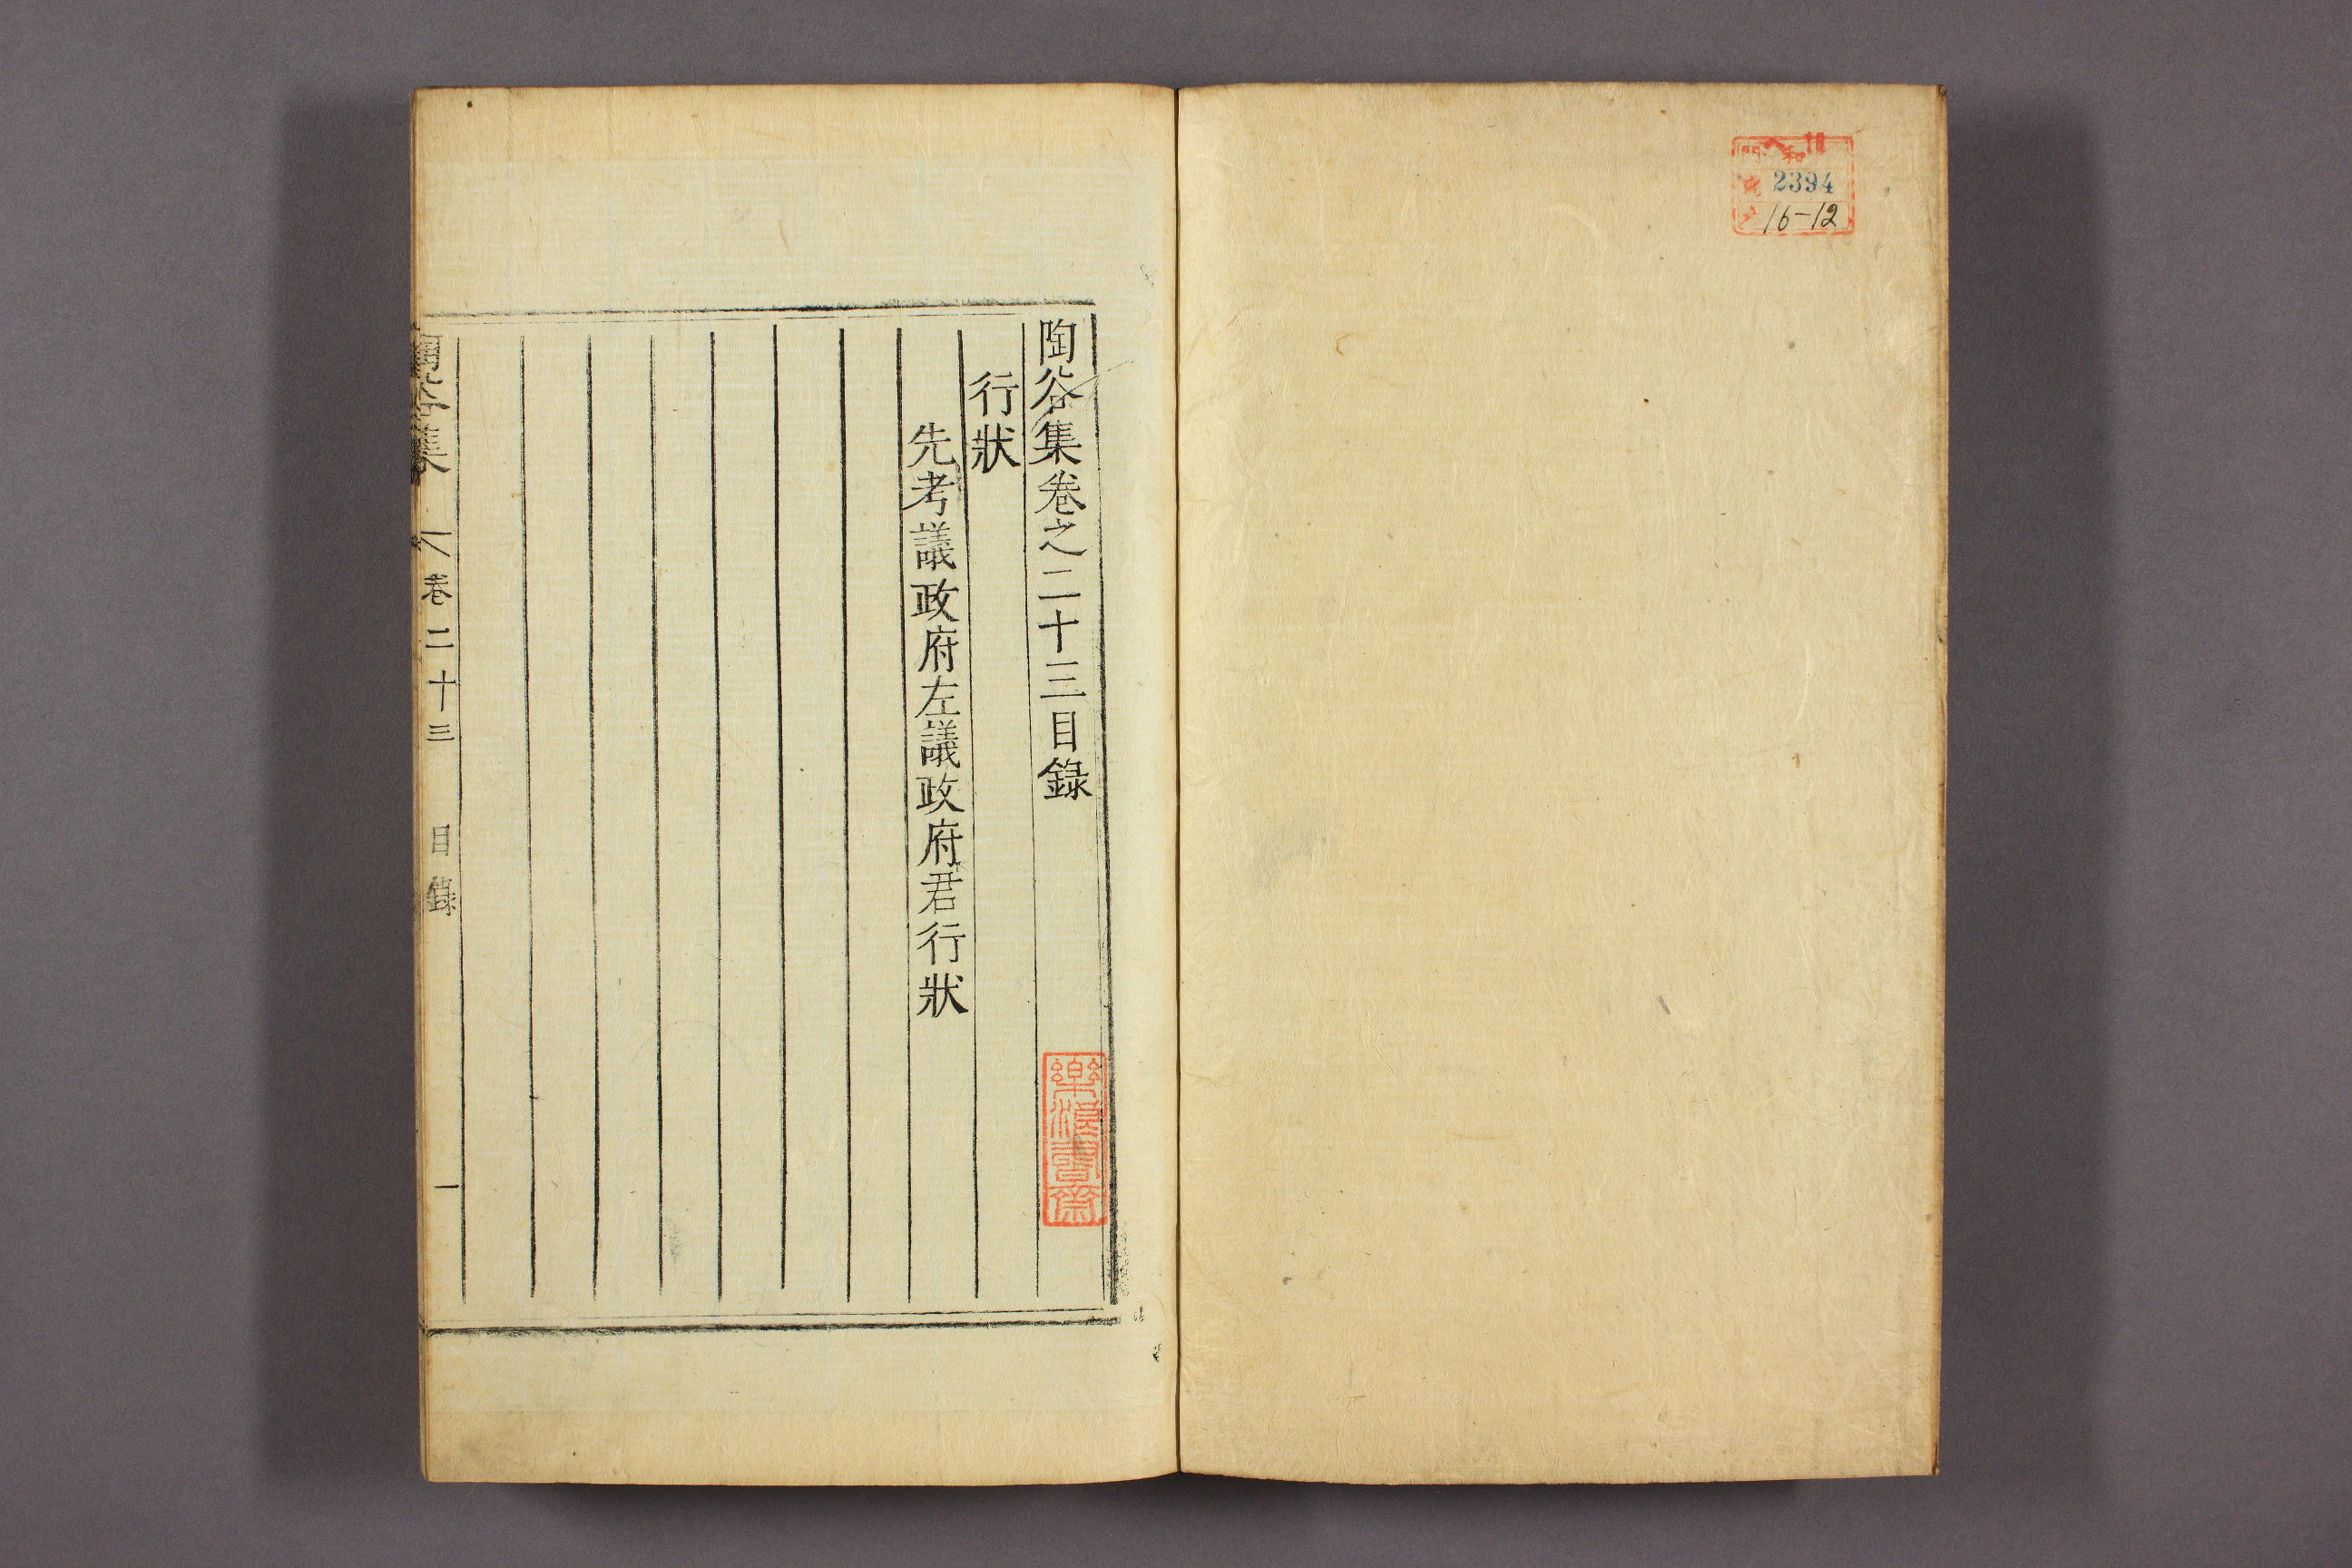 和
2394
16-12
陶谷集卷之二十三目錄
行狀
先考議政府左議政府君行狀
樂浪書齋
陶谷集 卷二十三 目錄 一